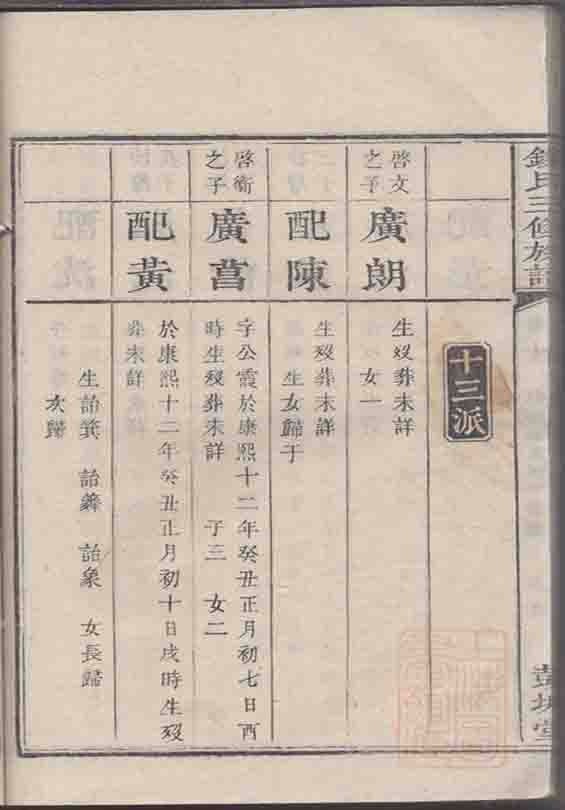 氏三修族
十三派
啓文
之子
廣朗
生殁葬未詳
女一
配陳
生殁葬未詳
生女歸于
啓衛
之子
廣菖
字公霞於康熙十二年癸丑正月初七日酉
時生殁葬未詳　子三　女二
配黃
於康熙十二年癸丑正月初十日戌時生殁
葬未詳
生詒箕　詒鏵　詒象　女長歸
次歸
堂